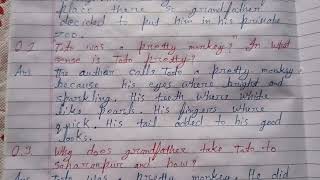 place there so grandfather
decided to put him in his private
zoo.
Q.2 Toto was a pretty monkey? In what
sense is Toto pretty?
Ans The author calls Toto a pretty monkey
because his eyes where bright and
sparkling. His teeth where white
like pearls. His fingers where
quick. His tail added to his good
looks.
Q.3 Why does grandfather take Toto to
Saharanpur and how?
Ans Toto was a pretty monkey. He did